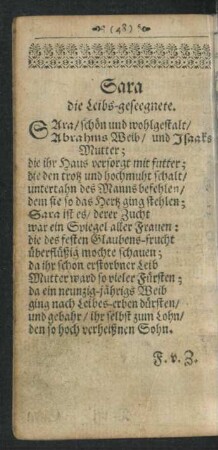 (48)
Sara
die Leibs-geseegnete.
SAra/ schön und wohlgestalt/
Abrahms Weib/ und Isaaks
Mutter;
die ihr Haus versorgt mit futter;
die den trotz und hochmuht schalt/
untertahn des Manns befehlen/
dem sie so das Hertz ging stehlen;
Sara ist es/ derer Zucht
war ein Spiegel aller Frauen:
die des festen Glaubens-frucht
überflüßig mochte schauen;
da ihr schon erstorbner Leib
Mutter ward so vieler Fürsten;
da ein neunzig-jährigs Weib
ging nach Leibes-erben dürsten/
und gebahr/ ihr selbst zum Lohn/
den so hoch verheißnen Sohn.
F. v. Z.